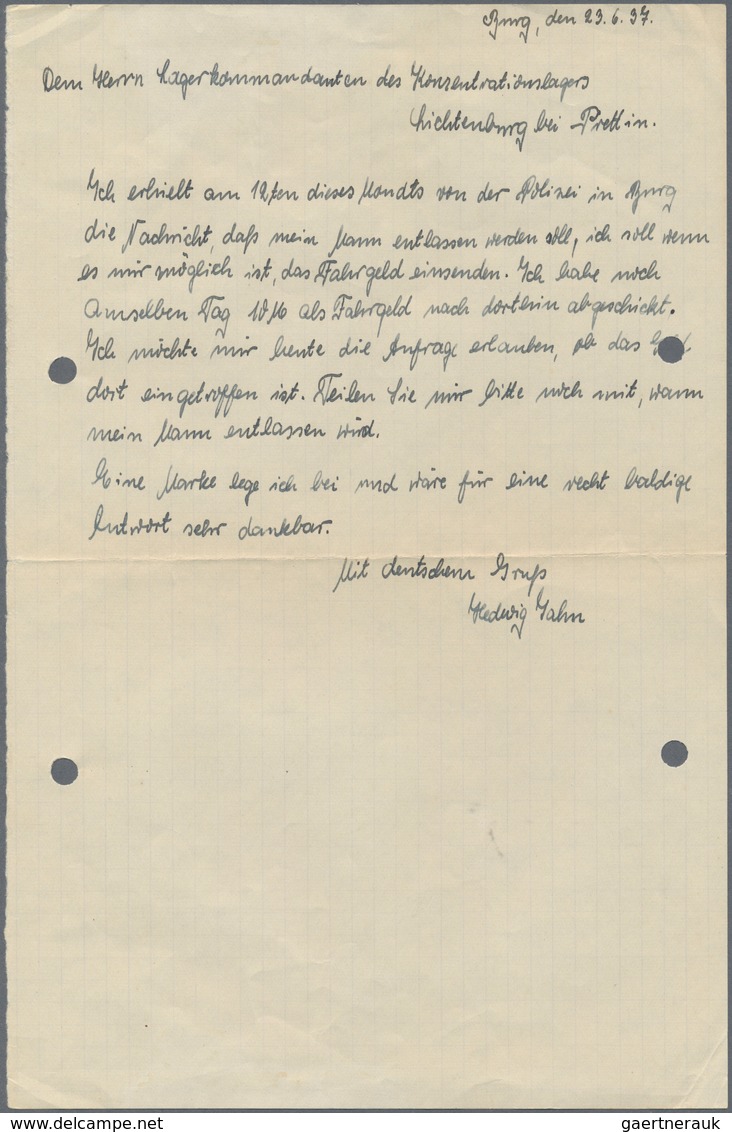 Burg, den 23.6.37.
Dem Herrn Lagerkommandanten des Konzentrationslagers
Lichtenburg bei Prettin.
Ich erhielt am 12ten dieses Monats von der Polizei in Burg
die Nachricht, daß mein Mann entlassen werden soll, ich soll wenn
es mir möglich ist, das Fahrgeld einsenden. Ich habe noch
Amselben Tag 10 M als Fahrgeld nach dorthin abgeschickt.
Ich möchte mir heute die Anfrage erlauben, ob das
dort eingetroffen ist. Teilen Sie mir bitte noch mit, wann
mein Mann entlassen wird.
Eine Marke lege ich bei und wäre für eine recht baldige
Antwort sehr dankbar.
Mit deutschem Gruß
Hedwig Jahn
gaertnerauk